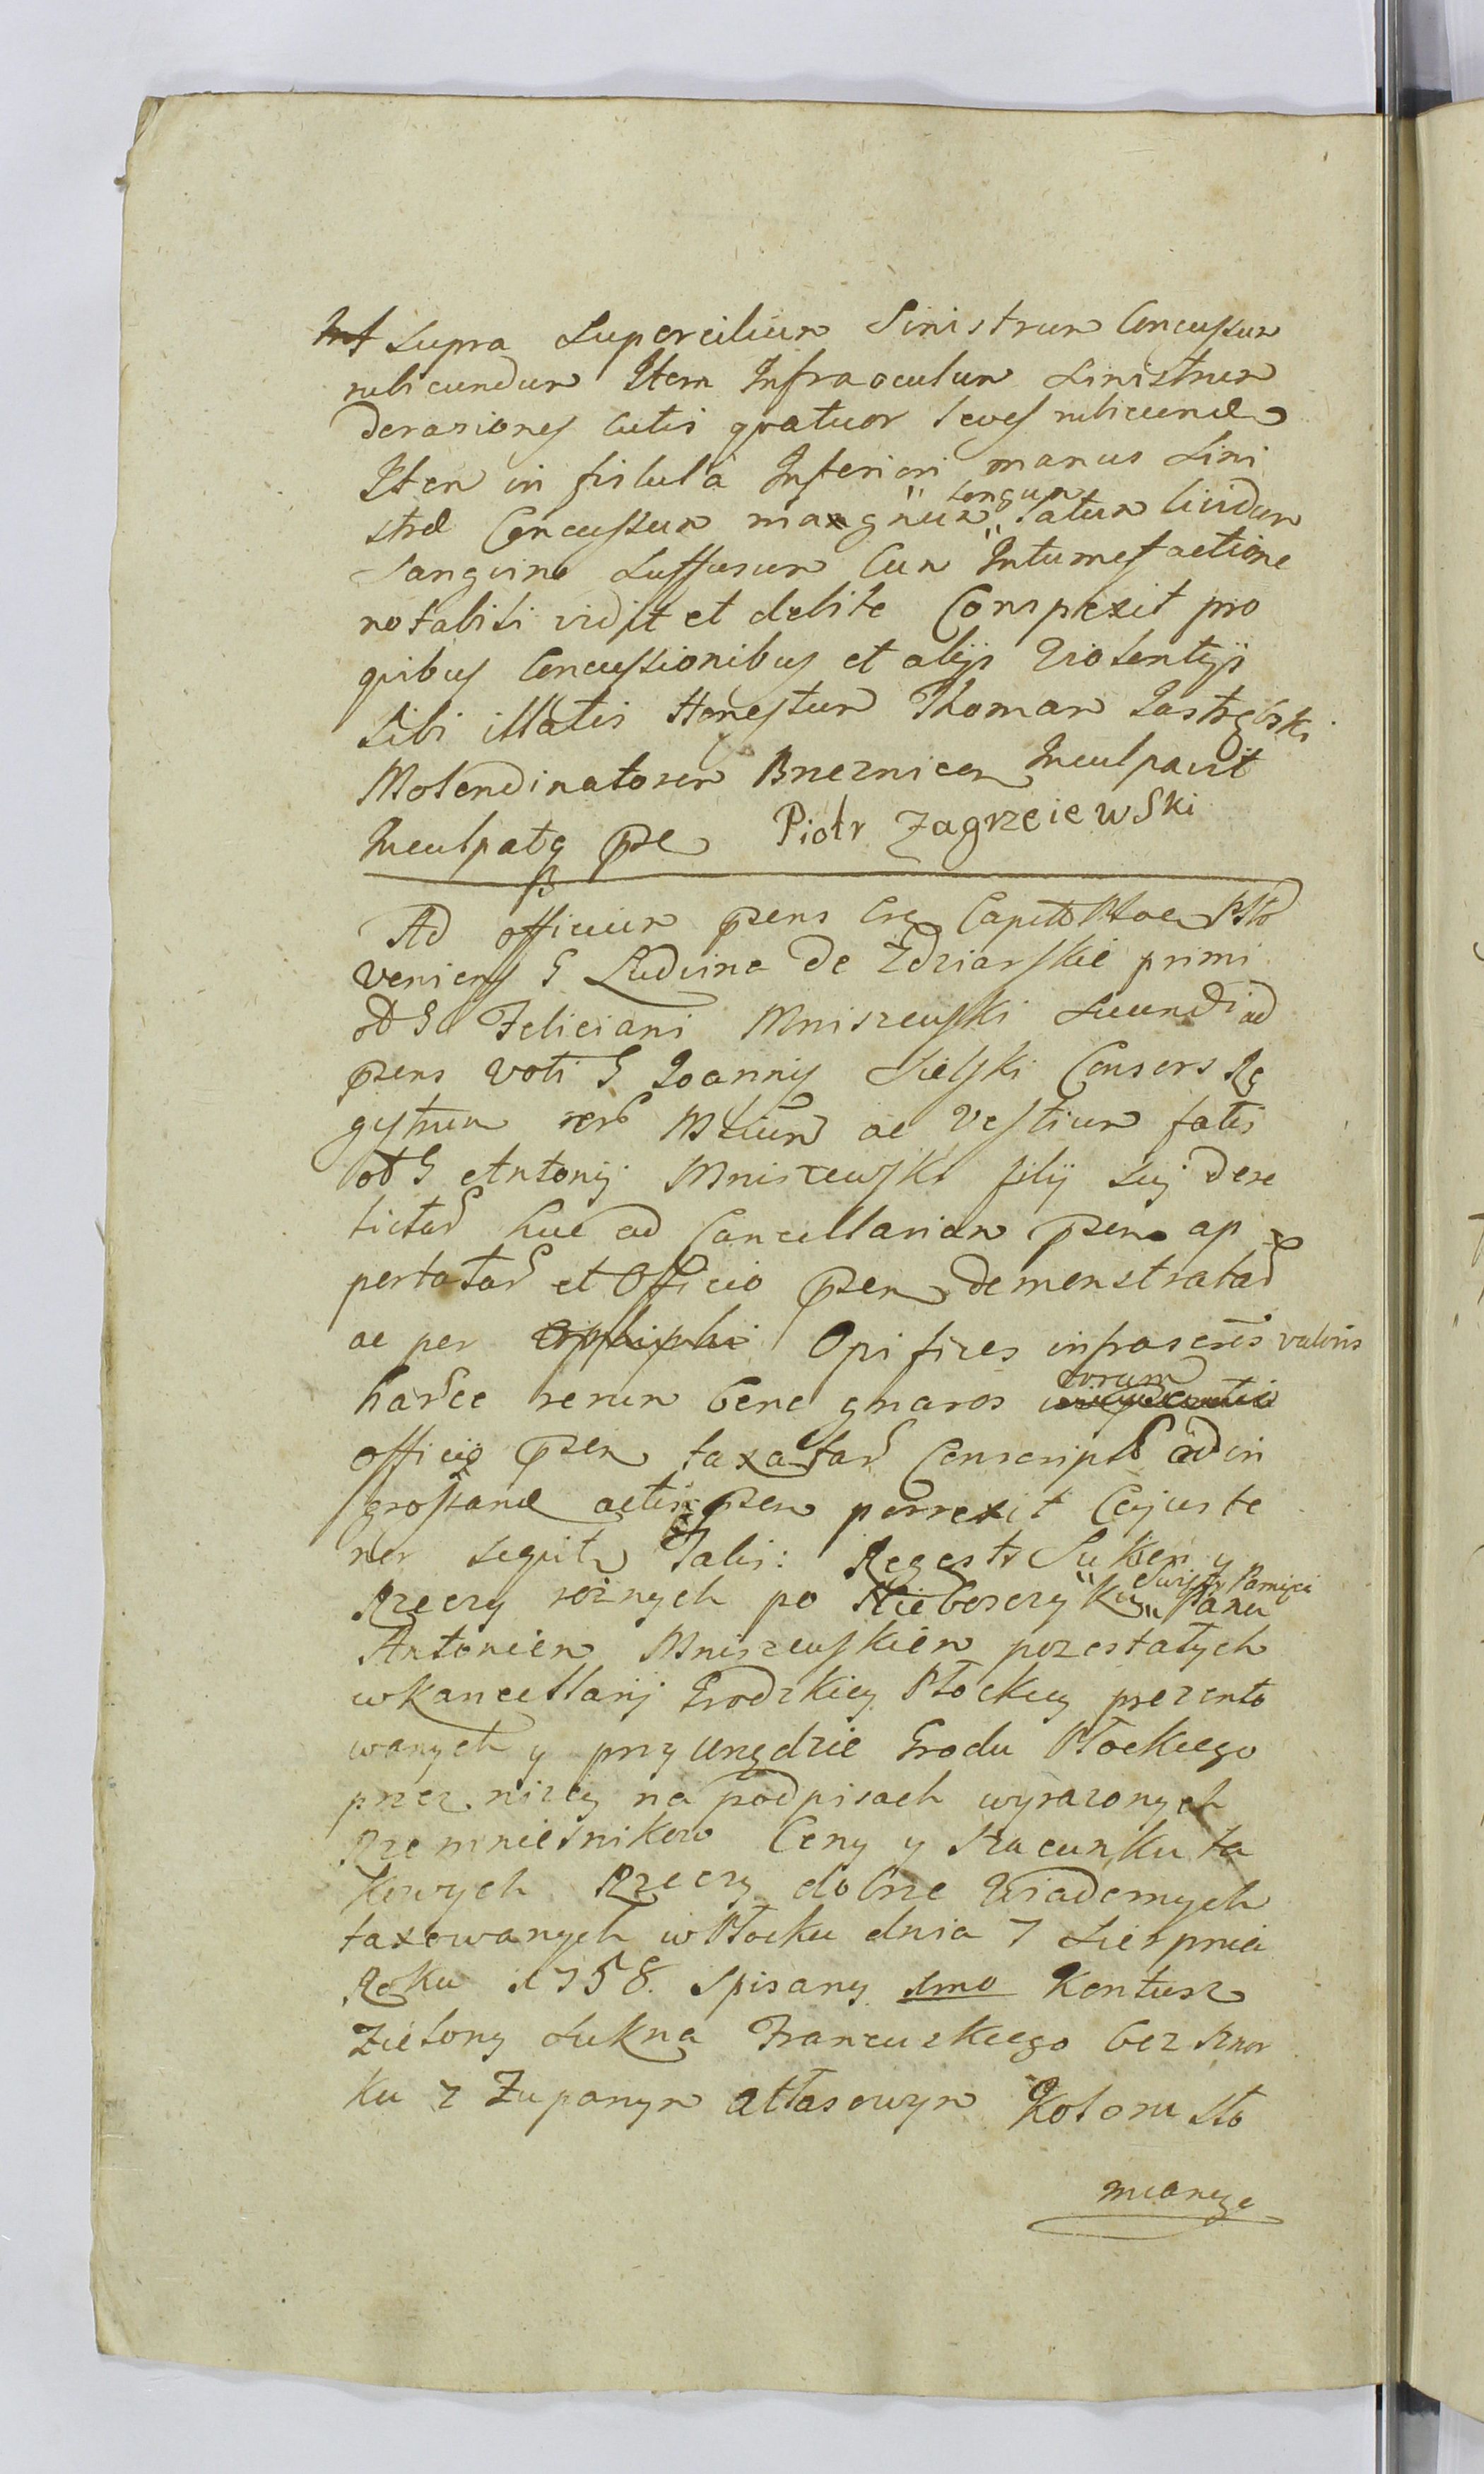 Supra Supercilium Sinistrum Concussum
rubicundum Item Infra oculum Sinistrum
derasiones Cutis qvatuor Leves rubicundæ
Item in fistula Inferiori manus Sini
stræ Concussum magnum longum latum lividum
Sangvine Suffusum Cum Intumefactione
notabili vidit et debite Conspexit pro
qvibus Concussionibus et alijs Violentijs
Sibi illatis Honestum Thomam Jastrębski
Molendinatorem Inculpavit
Inculpatq pse Piotr Zagrzeiewski
Ad officium psens Cre Capitt
Veniens G Ludvina de Zdziarskie primi
od G Feliciani Mniszewski Secundi ad
psens voti G Joannis Sielski Consors Re
gystrum rerū ac Vestium fatis
od G Antonij Mniszewski filij Sui dere
lictar huc ad Cancellariam psen ap
portatar et Officio psen demonstratar
ac per Opifices infrascrtos valoris
harce rerum bene gnaros coram
officio psen taxatar Conscript ad in
grossand actis psen porrexit Cujus te
nor seqvitr Talis: Regestr Sukien y
Rzeczy rożnych po Nieboszczyku Swięty Pamięci Panu
Antonim Mniszewskim pozostałych
w Kancellarij Grodzkiey Płockiey prezento
wanych y przy Urzędzie Grodu Płockiego
przez niżey na podpisach wyrazonych
Rzemnieśnikow Ceny y szacunku ta
kowych Rzeczy dobrze Wiadomych
taxowanych w Płocku dnia 7 Sierpnia
Roku 1758. Spisany 1mo Kontusz
Zielony Sukna Francuzkiego bez sznor
ku z Zupanym atłasowym Koloru Sło
mianego